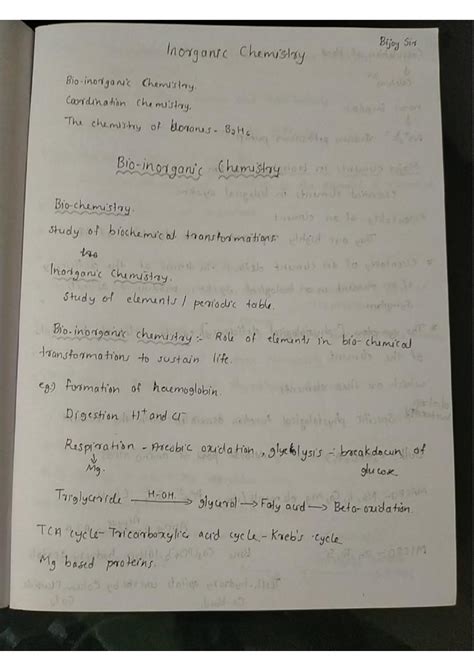 Bijoy Sir
Inorganic Chemistry
Bio-inorganic Chemistry.
Coordination chemistry.
The chemistry of boranes - B2H6.
Bio-inorganic Chemistry
Bio-chemistry.
study of biochemical transformations.
Inorganic Chemistry.
study of elements / periodic table.
Bio-inorganic chemistry:- Role of elements in bio-chemical
transformations to sustain life.
eg:) formation of haemoglobin.
Digestion H+ and Cl-
Respiration - Areobic oxidation, glycolysis - breakdown of
glucose
Mg.
Triglyceride H-OH. → glycerol → Faty acid → Beta-oxidation.
TCA cycle - Tricarboxylic acid cycle - Kreb's cycle
Mg based proteins.